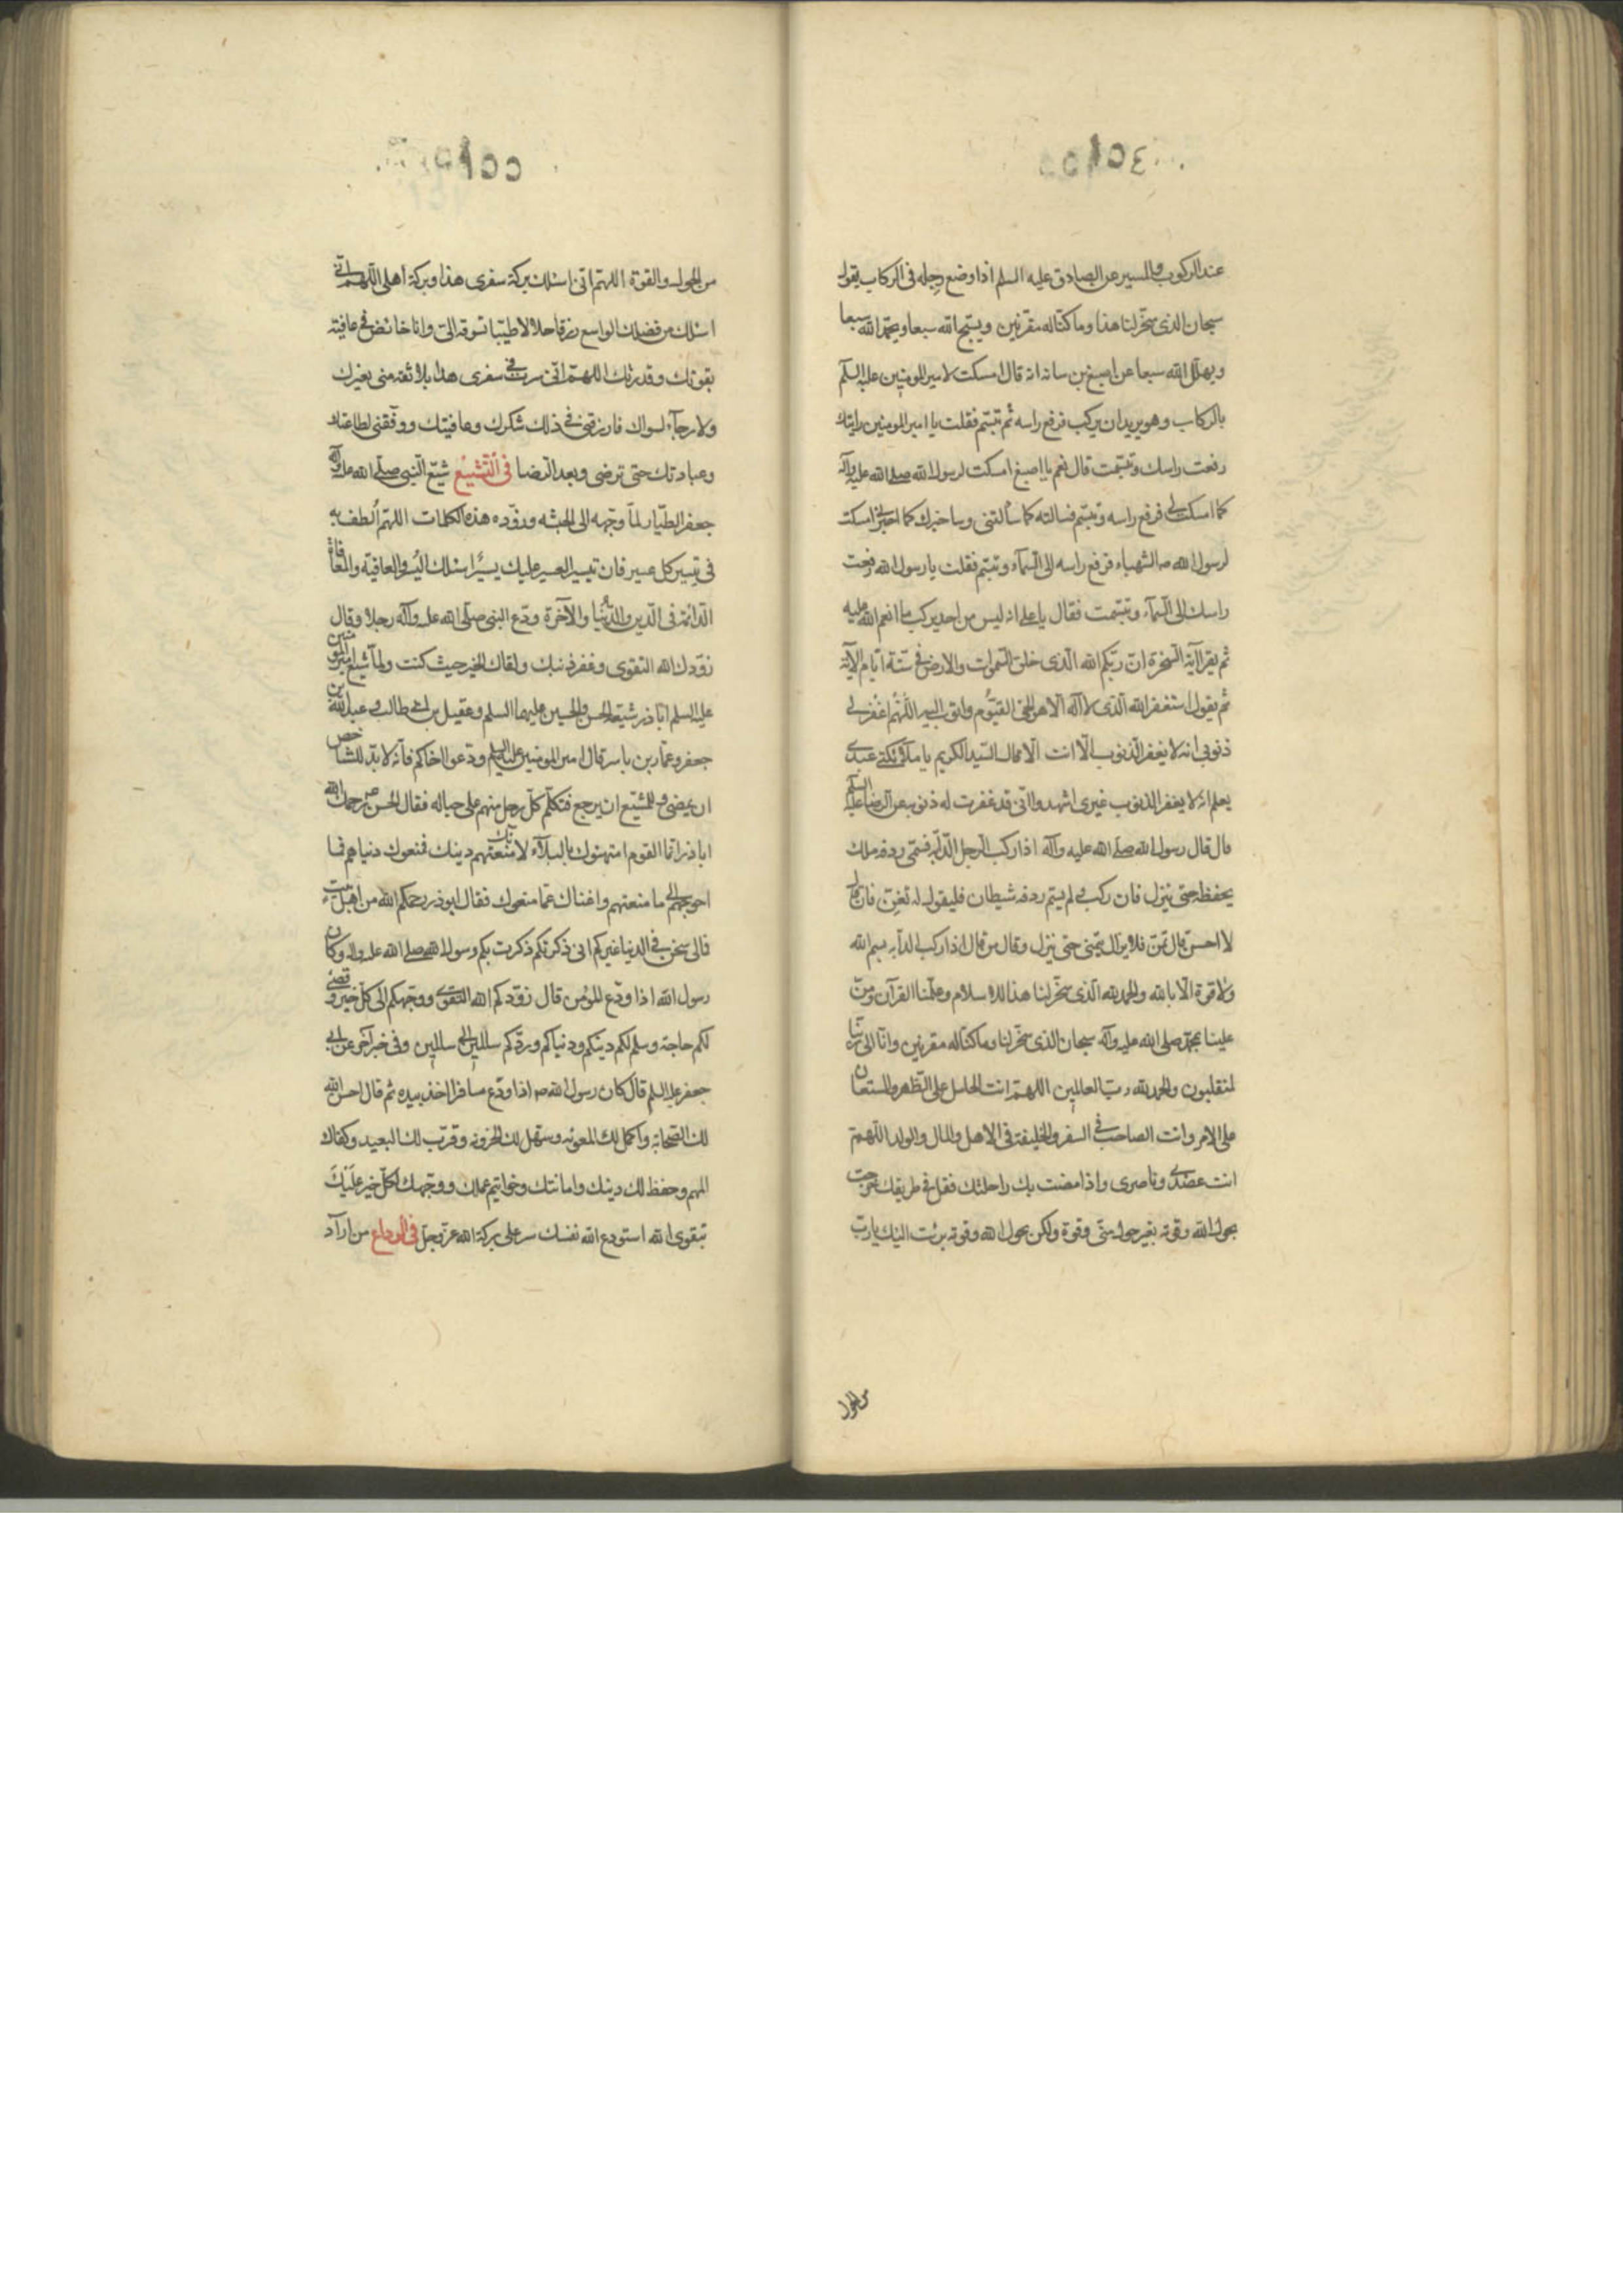 عند الركوب والمسير عن الصادق عليه السلم اذا وضع رجله فى الركاب يقول
سبحان الذى سخر لنا هذا وما كنا له مقرنين ويسبح الله سبعا ويحمد الله سبعا
ويهلل الله سبعا عن اصبغ بن نباته انه قال امسكت لامير المومنين عليه السلم
بالركاب وهو يريد ان يركب فرفع راسه ثم تبسم فقلت يا امير المومنين رايتك
رفعت راسك وتبسمت قال نعم يا اصبغ امسكت لرسول الله صلى الله عليه وآله
كما امسكت لى فرفع راسه وتبسم فسالته كما سألتنى وساخبرك كما اخبرنى امسكت
لرسول الله ص الشهباء فرفع راسه الى السمآء وتبسم فقلت يا رسول الله رفعت
راسك الى السمآء وتبسمت فقال يا على انه ليس من احد يركب ما انعم الله عليه
ثم يقرا آية السخرة ان ربكم الله الذى خلق السموات والارض فى ستة ايام الآية
ثم يقول استغفر الله الذى لا اله الا هو الحى القيوم واتوب اليه اللهم اغفر لى
ذنوبى انه لا يغفر الذنوب الا انت الا قال السيد الكريم يا ملائكتى عبدى
يعلم انه لا يغفر الذنوب غيرى اشهدوا انى قد غفرت له ذنوبه عن الرضا عليه السلم
قال قال رسول الله صلى الله عليه وآله اذا ركب الرجل الدابة فسمى ردفه ملك
يحفظه حتى ينزل فان ركب ولم يسم ردفه شيطان فليقول له تغن فان قال
لا احسن قال تمن فلا يزال يتمنى حتى ينزل وقال من قال اذا ركب الدابه بسم الله
ولا قوة الا بالله والحمد لله الذى سخر لنا هذا للاسلام وعلمنا القرآن ومن
علينا بمحمد صلى الله عليه وآله سبحان الذى سخر لنا وما كنا له مقرنين وانا الى ربنا
لمنقلبون والحمد لله رب العالمين اللهم انت الحامل على الظهر والمستعان
على الامر وانت الصاحب فى السفر والخليفة فى الاهل والمال والولد اللهم
انت عضدى وناصرى واذا مضت بك راحلتك فقل فى طريقك خرجت
بحول الله وقوته بغير حول منى وقوة ولكن بحول الله وقوته برئت اليك يا رب
من الحول
من الحول والقوة اللهم انى اسئلك بركة سفرى هذا وبركة اهلى اللهم انى
اسئلك من فضلك الواسع رزقا حلالا طيبا تسوقه الى وانا خائض فى عافية
بقوتك وقدرتك اللهم انى سرت فى سفرى هذا بلا ثقة منى بغيرك
ولا رجآء لسواك فارزقنى فى ذلك شكرك وعافيتك ووفقنى لطاعتك
وعبادتك حتى ترضى وبعد الرضا فى التشييع شيع النبى صلى الله عليه وآله
جعفر الطيار لما وجهه الى الحبشه وزوده هذه الكلمات اللهم الطف به
فى تيسير كل عسير فان تيسير العسير عليك يسير اسئلك اليسر والعافية والمعافاة
الدائمة فى الدين والدنيا والآخرة ودع النبى صلى الله عليه وآله رجلا وقال
زودك الله التقوى وغفر ذنبك ولقاك الخير حيث كنت ولما شيع امير المومنين
عليه السلم ابا ذر شيعه الحسن والحسين عليهما السلم وعقيل بن ابى طالب وعبد الله بن
جعفر وعمار بن ياسر قال امير المومنين عليه السلم ودعوا اخاكم فانه لا بد للشاخص
ان يمضى وللمشيع ان يرجع فتكلم كل رجل منهم على حياله فقال الحسن ع رحمك الله
ابا ذر انما القوم امتهنوك بالبلآء لانك منعتهم دينك فمنعوك دنياهم فما
احوجهم الى ما منعتهم واغناك عما منعوك فقال ابو ذر رحمكم الله من اهل بيت
فما لى شجن فى الدنيا غيركم انى ذكرتكم ذكرت بكم رسول الله صلى الله عليه واله وكان
رسول الله اذا ودع المؤمن قال زودكم الله التقوى ووجهكم الى كل خير وقضى
لكم حاجة وسلم لكم دينكم ودنياكم وردكم سالمين الى سالمين وفى خبر آخر عن ابى
جعفر عليه السلم قال كان رسول الله ص اذا ودع مسافرا اخذ بيده ثم قال احسن الله
لك الصحابة واكمل لك المعونه وسهل لك الحزونه وقرب لك البعيد وكفاك
المهم وحفظ لك دينك وامانتك وخواتيم عملك ووجهك لكل خير عليك
بتقوى الله استودع الله نفسك سر على بركة الله عز وجل فى الوداع من اراد